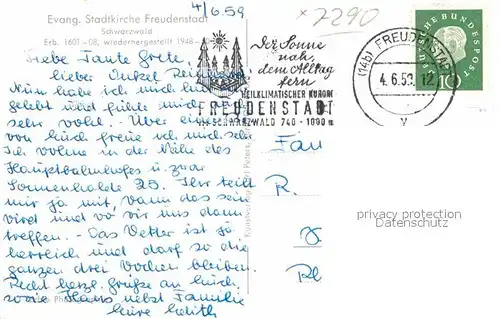 4/6.59
x7290
Evang. Stadtkirche Freudenstadt
Schwarzwald
Erb. 1601-08, wiederhergestellt 1948-
Liebe Tante Grete,
lieber Onkel
Nun habe ich mich hier
gelebt und fühle mich
sehr wohl. Über einen
von Euch freue ich mich sehr.
Ich wohne in der Nähe des
Hauptbahnhofes u. zwar
Sonnenhalde 25. Ihr teilt
mir ja mit, wann das sein
wird und wo wir uns dann
treffen. - Das Wetter ist ja
herrlich und darf so die
ganzen drei Wochen bleiben.
Recht herzl. Grüße an Euch
sowie Hans nebst Familie
Eure Edith
Der Sonne
nah,
dem Alltag
fern
HEILKLIMATISCHER KURORT
FREUDENSTADT
IM SCHWARZWALD 740-1000 m
(14b) FREUDENSTADT
4.6.59.12
v
DEUTSCHE BUNDESPOST
10
Frau
R.
privacy protection
VDDB
Kunstverlag